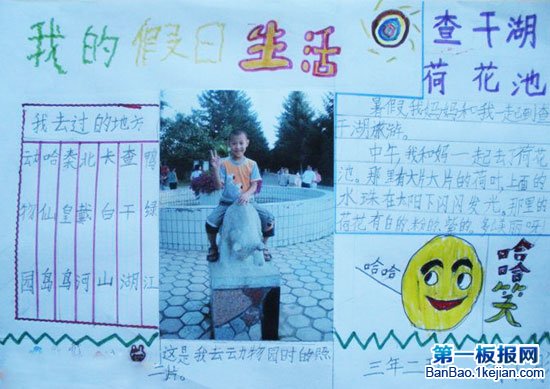 我的假日生活
查干湖
荷花池
我去过的地方
动物园
哈仙岛
秦皇岛
北戴河
长白山
查干湖
鸭绿江
暑假,我妈妈和我一起到查
干湖旅游。
中午,我和妈一起去了荷花
池。那里有大片大片的荷叶,上面的
水珠在太阳下闪闪发光。那里的
荷花有白的粉的紫的,多美丽呀
哈哈
哈哈笑
这是我去动物园时的照
片。
三年二
第一板报网
BanBao.1kejian.com